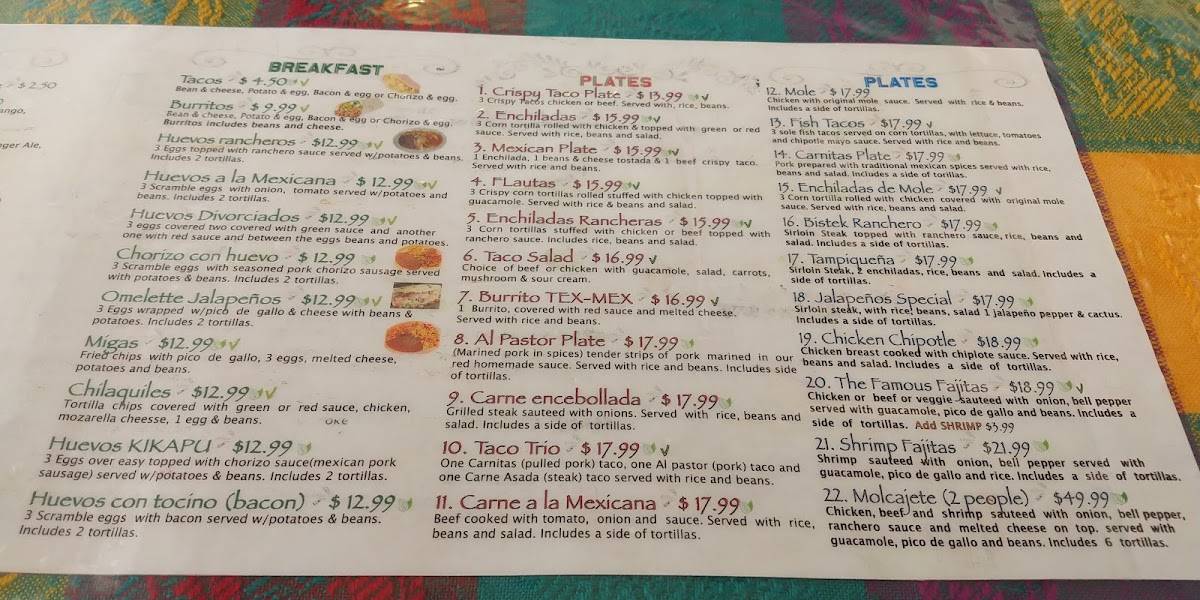 $2.50
ango,
ger Ale,
BREAKFAST
Tacos - $ 4.50 V
Bean & cheese, Potato & egg, Bacon & egg or Chorizo & egg.
Burritos - $ 9.99 V
Bean & cheese, Potato & egg, Bacon & egg or Chorizo & egg.
Burritos includes beans and cheese.
Huevos rancheros - $12.99 V
3 Eggs topped with ranchero sauce served w/potatoes & beans.
Includes 2 tortillas.
Huevos a la Mexicana - $ 12.99 V
3 Scramble eggs with onion, tomato served w/potatoes and
beans. Includes 2 tortillas.
Huevos Divorciados - $12.99 V
3 eggs covered two covered with green sauce and another
one with red sauce and between the eggs beans and potatoes.
Chorizo con huevo - $ 12.99
3 Scramble eggs with seasoned pork chorizo sausage served
with potatoes & beans. Includes 2 tortillas.
Omelette Jalapeños - $12.99 V
3 Eggs wrapped w/pico de gallo & cheese with beans &
potatoes. Includes 2 tortillas.
Migas - $12.99 V
Fried chips with pico de gallo, 3 eggs, melted cheese,
potatoes and beans.
Chilaquiles - $12.99 V
Tortilla chips covered with green or red sauce, chicken,
mozarella cheesse, 1 egg & beans.
OKE
Huevos KIKAPU - $12.99
3 Eggs over easy topped with chorizo sauce(mexican pork
sausage) served w/potatoes & beans. Includes 2 tortillas.
Huevos con tocino (bacon) - $ 12.99
3 Scramble eggs with bacon served w/potatoes & beans.
Includes 2 tortillas.
PLATES
1. Crispy Taco Plate - $ 13.99 V
3 Crispy Tacos chicken or beef. Served with, rice, beans.
2. Enchiladas - $ 15.99 V
3 Corn tortilla rolled with chicken & topped with green or red
sauce. Served with rice, beans and salad.
3. Mexican Plate - $ 15.99 V
1 Enchilada, 1 beans & cheese tostada & 1 beef crispy taco.
Served with rice and beans.
4. FLautas - $ 15.99 V
3 Crispy corn tortillas rolled stuffed with chicken topped with
guacamole. Served with rice & beans and salad.
5. Enchiladas Rancheras - $ 15.99 V
3 Corn tortillas stuffed with chicken or beef topped with
ranchero sauce. Includes rice, beans and salad.
6. Taco Salad - $ 16.99 V
Choice of beef or chicken with guacamole, salad, carrots,
mushroom & sour cream.
7. Burrito TEX-MEX - $ 16.99 V
1 Burrito, covered with red sauce and melted cheese.
Served with rice and beans.
8. Al Pastor Plate - $ 17.99
(Marined pork in spices) tender strips of pork marined in our
red homemade sauce. Served with rice and beans. Includes side
of tortillas.
9. Carne encebollada - $ 17.99
Grilled steak sauteed with onions. Served with rice, beans and
salad. Includes a side of tortillas.
10. Taco Trio - $ 17.99 V
One Carnitas (pulled pork) taco, one Al pastor (pork) taco and
one Carne Asada (steak) taco served with rice and beans.
11. Carne a la Mexicana - $ 17.99
Beef cooked with tomato, onion and sauce. Served with rice,
beans and salad. Includes a side of tortillas.
PLATES
12. Mole - $ 17.99
Chicken with original mole sauce. Served with rice & beans.
Includes a side of tortillas.
13. Fish Tacos - $17.99 V
3 sole fish tacos served on corn tortillas, with lettuce, tomatoes
and chipotle mayo sauce. Served with rice and beans.
14. Carnitas Plate - $17.99
Pork prepared with traditional mexican spices served with rice,
beans and salad. Includes a side of tortillas.
15. Enchiladas de Mole - $17.99 V
3 Corn tortilla rolled with chicken covered with original mole
sauce. Served with rice, beans and salad.
16. Bistek Ranchero - $17.99
Sirloin Steak topped with ranchero sauce, rice, beans and
salad. Includes a side of tortillas.
17. Tampiqueña - $17.99
Sirloin Steak, 2 enchiladas, rice, beans and salad. Includes a
side of tortillas.
18. Jalapeños Special - $17.99
Sirloin steak, with rice, beans, salad 1 jalapeño pepper & cactus.
Includes a side of tortillas.
19. Chicken Chipotle - $18.99
Chicken breast cooked with chiplote sauce. Served with rice,
beans and salad. Includes a side of tortillas.
20. The Famous Fajitas - $18.99 V
Chicken or beef or veggie sauteed with onion, bell pepper
served with guacamole, pico de gallo and beans. Includes a
side of tortillas. Add SHRIMP $3.99
21. Shrimp Fajitas - $21.99
Shrimp sauteed with onion, bell pepper served with
guacamole, pico de gallo and rice. Includes a side of tortillas.
22. Molcajete (2 people) - $49.99
Chicken, beef and shrimp sauteed with onion, bell pepper,
ranchero sauce and melted cheese on top. served with
guacamole, pico de gallo and beans. Includes 6 tortillas.